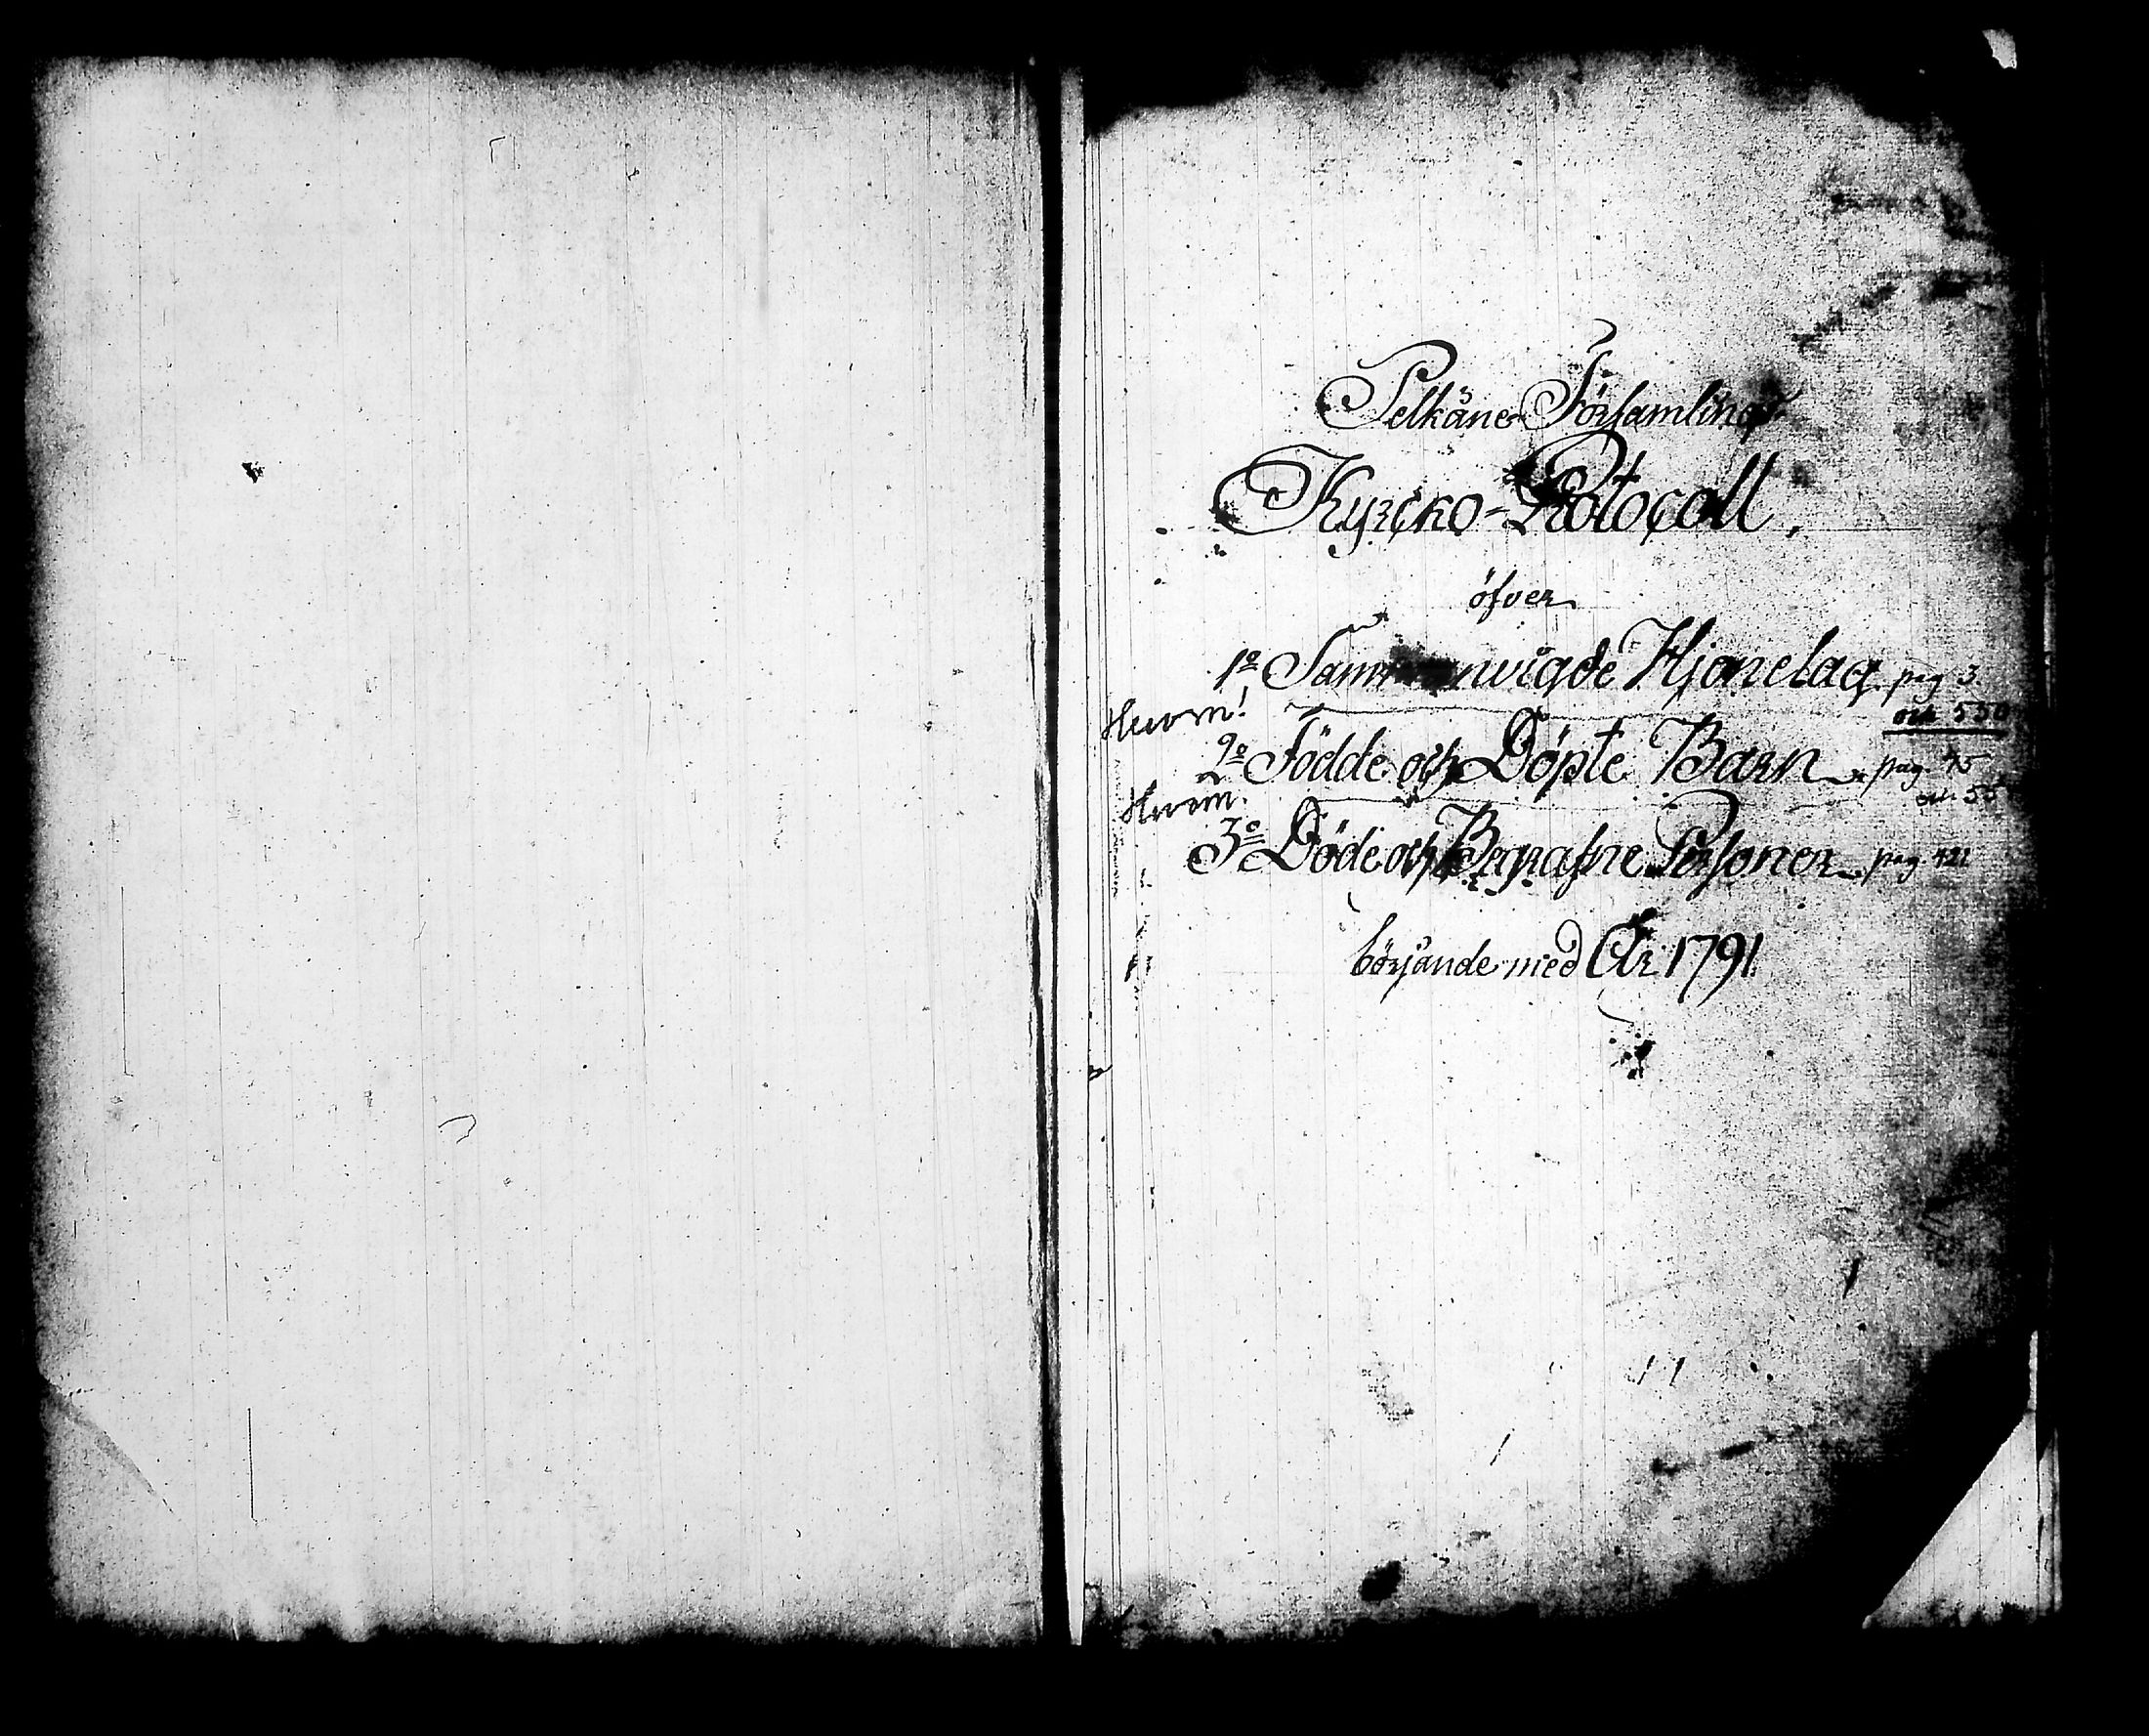 Pelkäne Församlings
Kyrcko-Protocoll,
öfver
1º Sammanvigde Hjonelag pag 3
Huom! och 550
2º Födde och Döpte Barn pag. 75
Huom. och 55
3º Döde och Begrafne Personer pag. 421
börjande med År 1791